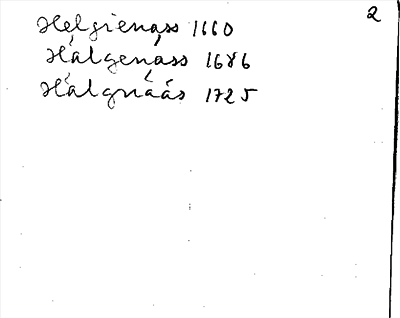 2
Helgienass 1660
Hálgenass 1686
Hálgnáás 1725